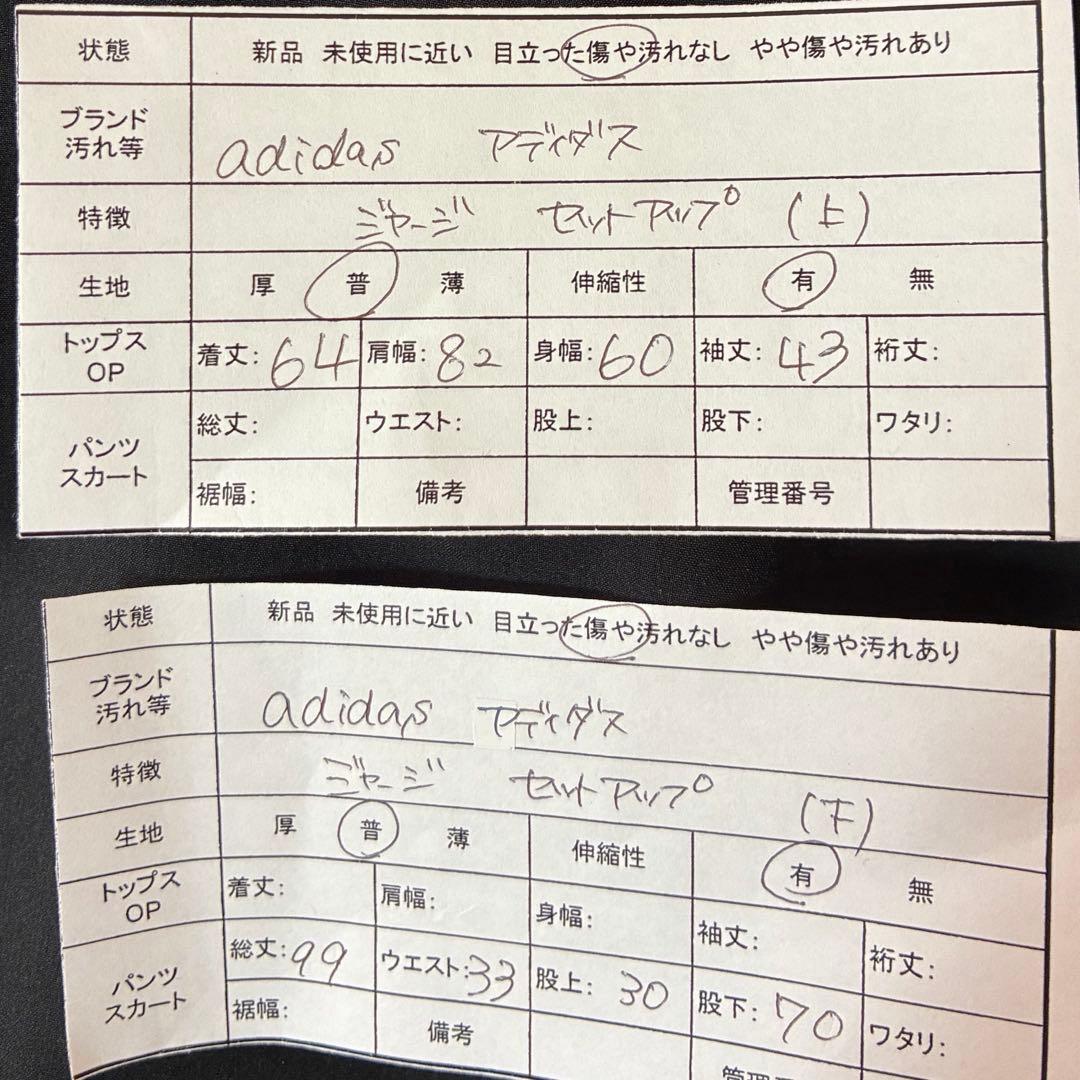 状態 新品 未使用に近い 目立った傷や汚れなし やや傷や汚れあり
ブランド
汚れ等 adidas アディダス
特徴 ジャージ セットアップ (上)
生地 厚 普 薄 伸縮性 有 無
トップス
OP 着丈:64 肩幅:82 身幅:60 袖丈:43 裄丈:
パンツ
スカート 総丈: ウエスト: 股上: 股下: ワタリ:
裾幅: 備考 管理番号
状態 新品 未使用に近い 目立った傷や汚れなし やや傷や汚れあり
ブランド
汚れ等 adidas アディダス
特徴 ジャージ セットアップ (下)
生地 厚 普 薄 伸縮性 有 無
トップス
OP 着丈: 肩幅: 身幅: 袖丈: 裄丈:
パンツ
スカート 総丈:99 ウエスト:33 股上:30 股下:70 ワタリ:
裾幅: 備考